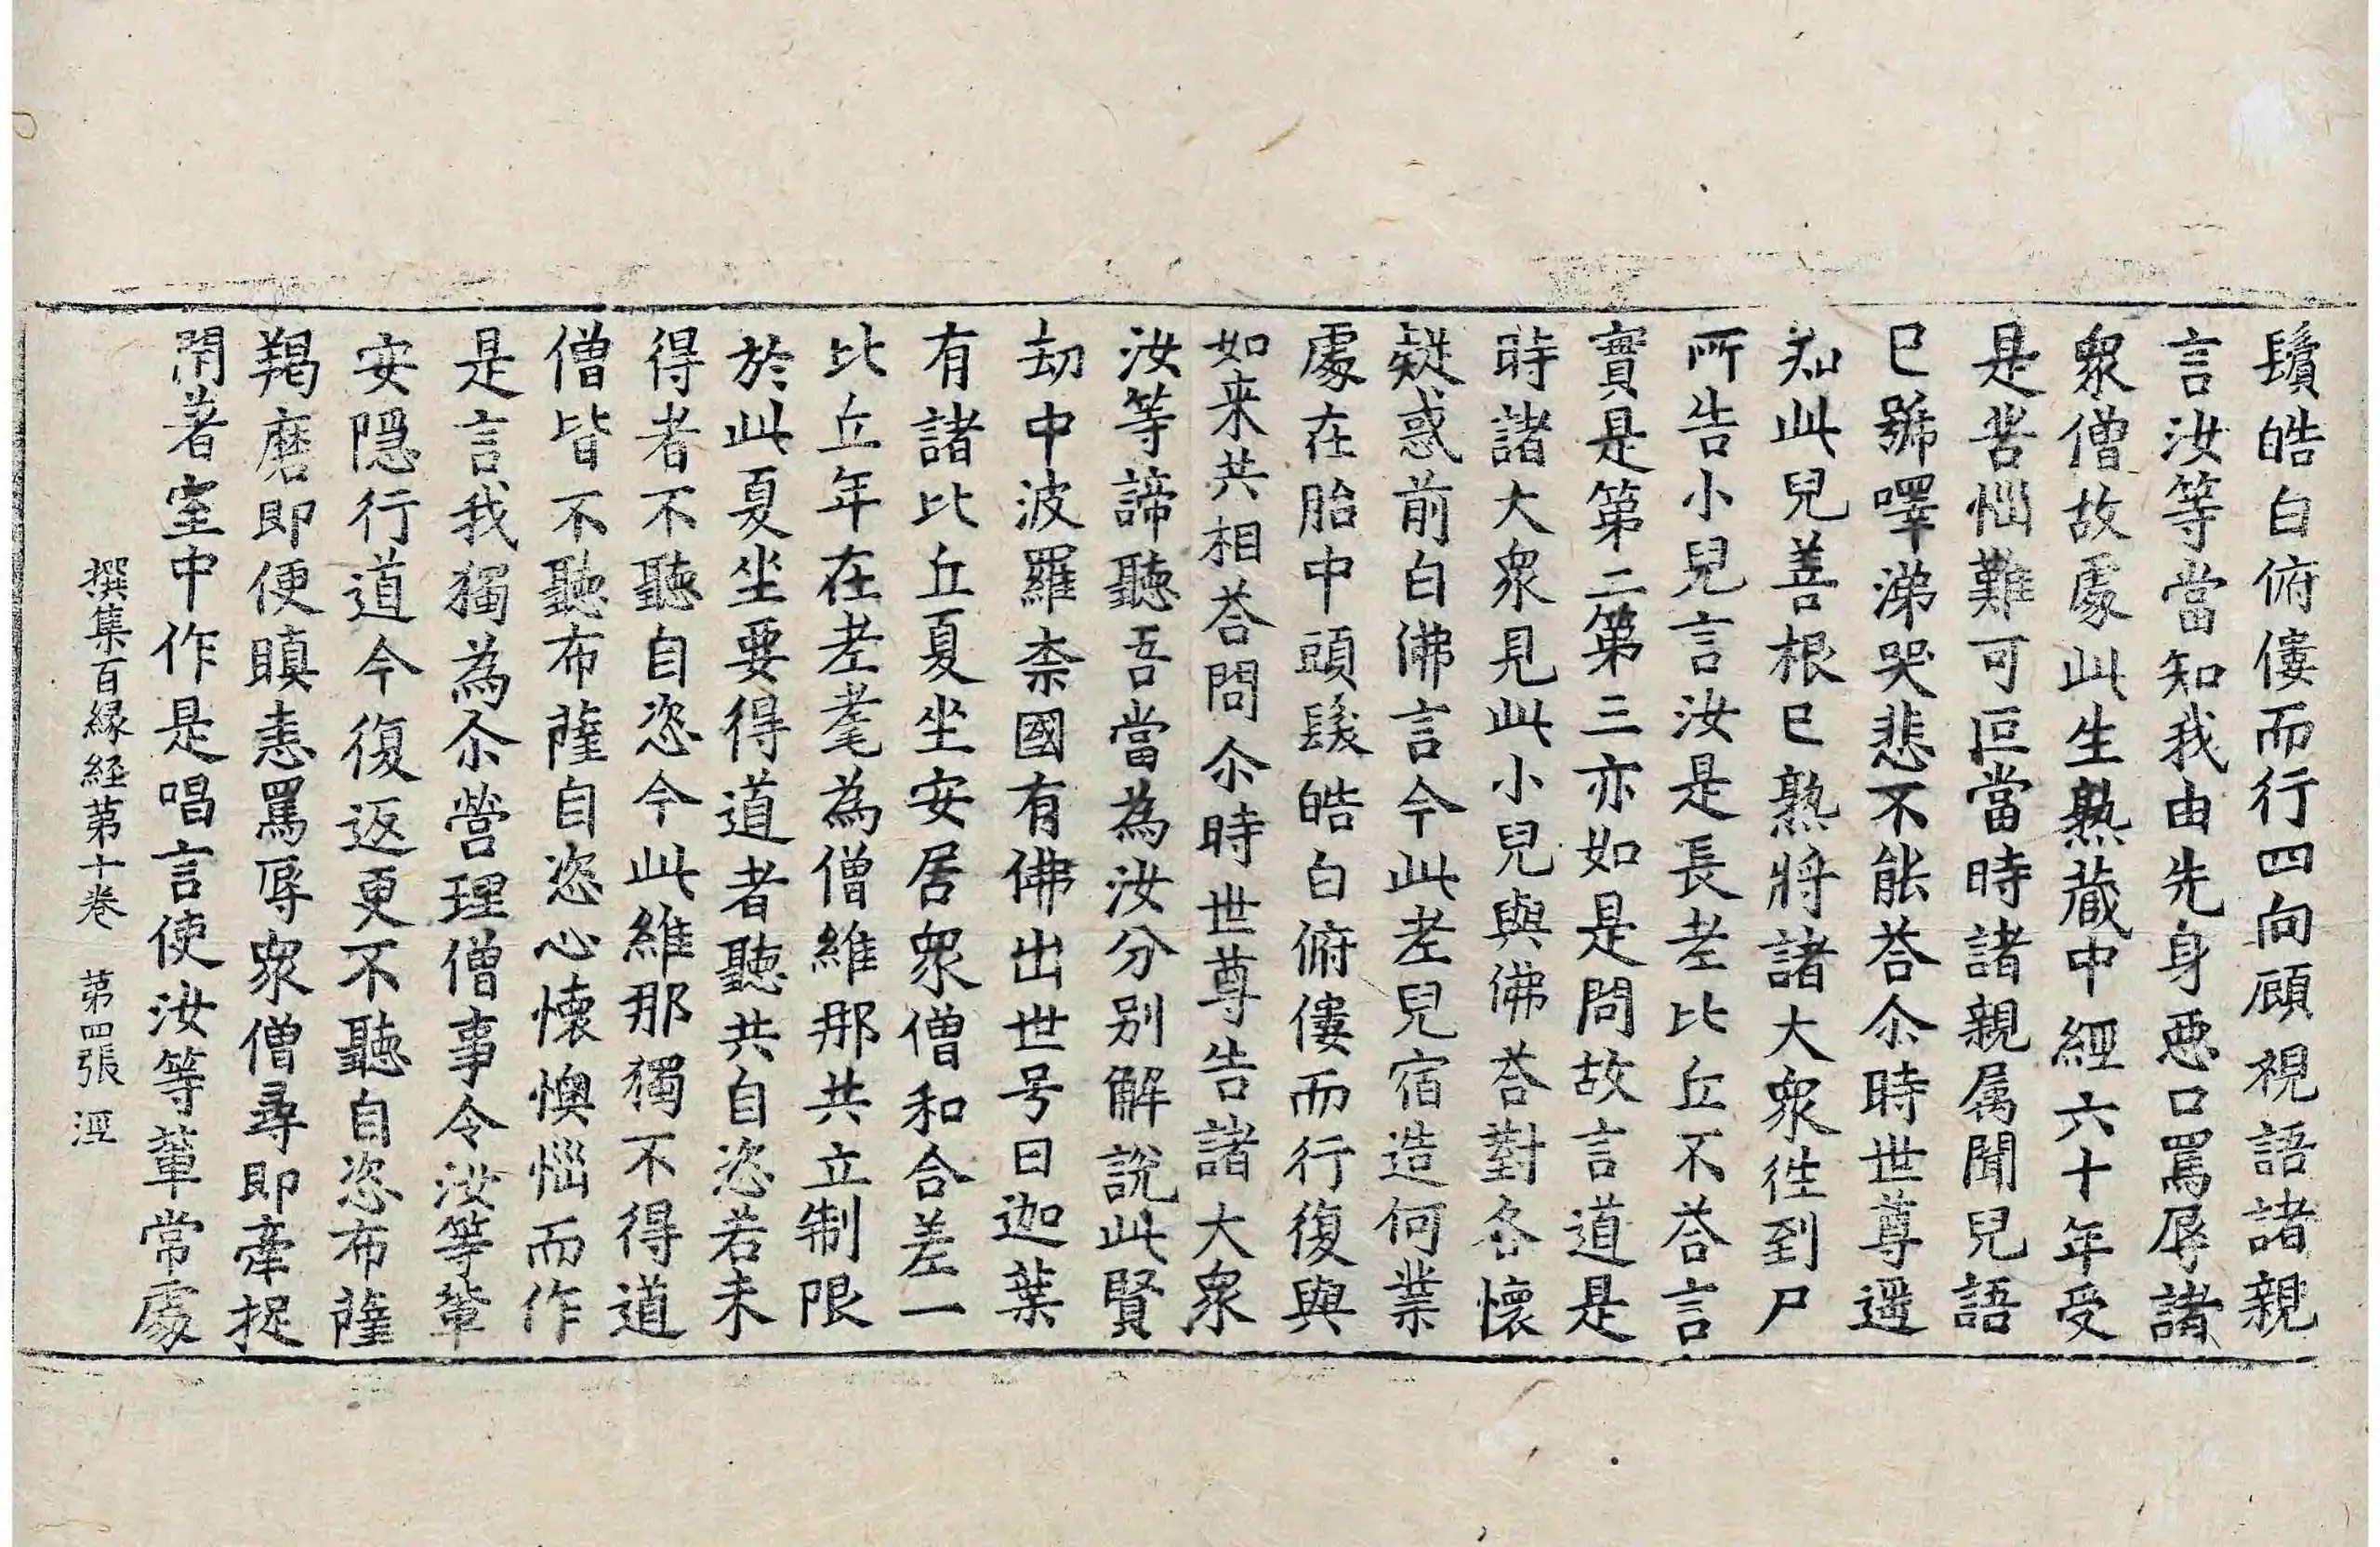 鬚皓白俯僂而行四向顧視語諸親
言汝等當知我由先身惡口罵辱諸
衆僧故處此生熟蔵中經六十年受
是苦惱難可叵當時諸親属聞兒語
巳號嗁涕哭悲不能荅尒時世尊遥
知此兒善根巳熟將諸大衆徃到尸
所告小兒言汝是長老比丘不荅言
實是第二第三亦如是問故言道是
時諸大衆見此小兒與佛荅對各懷
疑惑前白佛言今此老兒宿造何業
處在胎中頭髮皓白俯僂而行復與
如来共相荅問尒時世尊告諸大衆
汝等諦聽吾當為汝分别解說此賢
劫中波羅柰國有佛出世号曰迦葉
有諸比丘夏坐安居衆僧和合差一
比丘年在老耄為僧維那共立制限
於此夏坐要得道者聽共自恣若未
得者不聽自恣今此維那獨不得道
僧皆不聽布薩自恣心懐懊惱而作
是言我獨為尒營理僧事令汝等輩
安隠行道今復返更不聽自恣布薩
羯磨即便瞋恚罵辱衆僧尋即牽捉
閇著室中作是唱言使汝等輩常處
撰集百縁経第十卷 第四張 涇